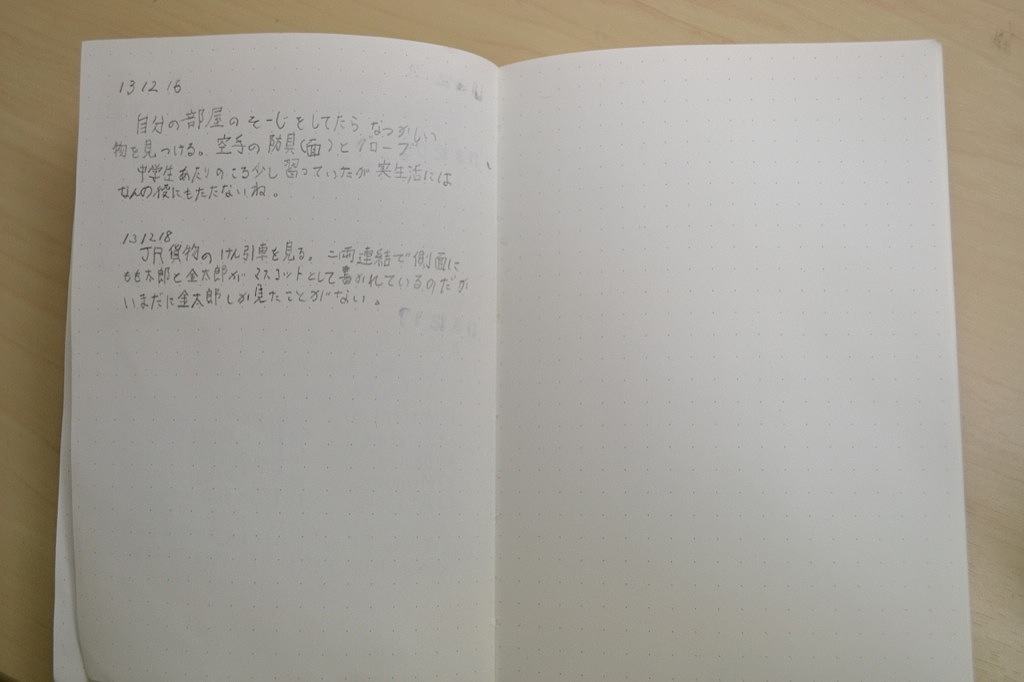 13 12 16
自分の部屋のそーじをしてたら なつかしい
物を見つける。空手の防具(面)とグローブ
中学生あたりのころ少し習っていたが実生活には
なんの役にもたたないね。
13 12 18
JR貨物のけん引車を見る。二両連結で側面に
もも太郎と金太郎がマスコットとして書かれているのだが
いまだに金太郎しか見たことがない。